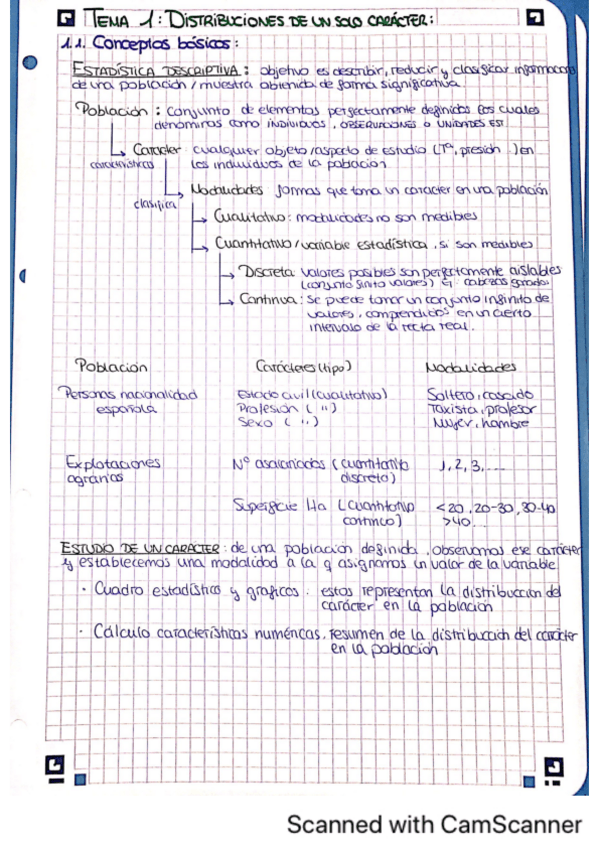 TEMA 1: DISTRIBUCIONES DE UN SOLO CARÁCTER:
1.1. Conceptos básicos:
ESTADÍSTICA DESCRIPTIVA: objetivo es describir, reducir y clasificar información
de una población / muestra obtenida de forma significativa.
Población: Conjunto de elementos perfectamente definidos los cuales
denominamos como INDIVIDUOS, OBSERVACIONES O UNIDADES EST
Carácter: cualquier objeto/aspecto de estudio (Tª, presión) en
características los individuos de la población
Modalidades: formas que toma un carácter en una población
clasifica
Cualitativo: modalidades no son medibles
Cuantitativo / variable estadística, si son medibles
Discreta: valores posibles son perfectamente aislables
(conjunto finito valores) Ej: cabezas ganado
Continua: Se puede tomar un conjunto infinito de
valores, comprendidos en un cierto
intervalo de la recta real.
Población Carácteres (tipo) Modalidades
Personas nacionalidad Estado civil (cualitativo) Soltero, casado
española Profesión ( " ) Taxista, profesor
Sexo ( " ) Mujer, hombre
Explotaciones Nº asalariados (cuantitativo 1, 2, 3, ....
agrarias discreto)
Superficie Ha (cuantitativo <20, 20-30, 30-40
continuo) >40...
ESTUDIO DE UN CARÁCTER: de una población definida, observamos ese carácter
y establecemos una modalidad a la q asignamos un valor de la variable
· Cuadro estadístico y gráficos: estos representan la distribución del
carácter en la población
· Cálculo características numéricas, resumen de la distribución del carácter
en la población
Scanned with CamScanner